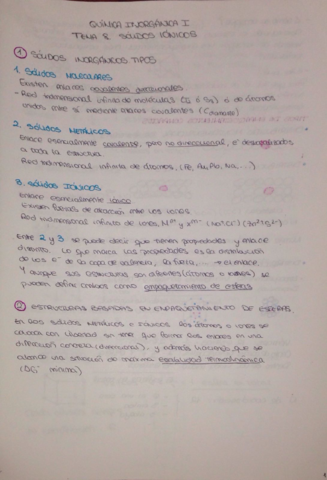 QUÍMICA INORGÁNICA I
TEMA 8. SÓLIDOS IÓNICOS
① SÓLIDOS INORGÁNICOS TIPOS
1. SÓLIDOS MOLECULARES
Existen enlaces covalentes direccionales
- Red tridimensional infinita de moléculas o de átomos
unidos entre sí mediante enlaces covalentes (Cdiamante)
2. SÓLIDOS METÁLICOS
Enlace esencialmente covalente, pero no direccional, e⁻ deslocalizados
a toda la estructura.
Red tridimensional infinita de átomos. (Fe, Au, Pb, Na, ...)
3. SÓLIDOS IÓNICOS
Enlace esencialmente iónico
Existen fuerzas de atracción entre los iones.
Red tridimensional infinita de iones (Na⁺Cl⁻)
Entre 2 y 3 se puede decir que tienen propiedades y enlace
distintos. Lo que marca las propiedades es la distribución
de los e⁻ de la capa de valencia, la fuerza, ... → el enlace.
Y aunque sus estructuras son diferentes (átomos o iones) se
pueden definir ambos como empaquetamiento de esferas
② ESTRUCTURAS BASADAS EN EMPAQUETAMIENTO DE ESFERAS
En los sólidos metálicos e iónicos los átomos o iones se
colocan con libertad sin tener que formar sus enlaces en una
dirección concreta (direccional) y además haciendo que se
alcance una situación de máxima estabilidad termodinámica
mínima)